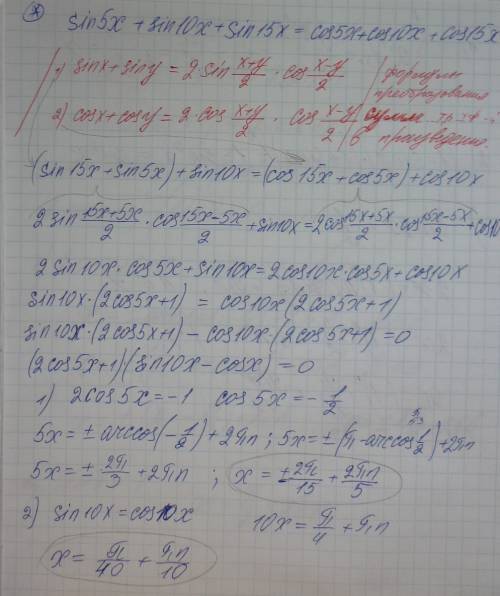 sin5x + sin10x + sin15x = cos5x + cos10x + cos15x
1) sinx + siny = 2·sin (x+y)/2 · cos (x-y)/2 формулы преобразования
2) cosx + cosy = 2·cos (x+y)/2 · cos (x-y)/2 сумм в произведение.
(sin15x + sin5x) + sin10x = (cos15x + cos5x) + cos10x
2sin (15x+5x)/2 · cos (15x-5x)/2 + sin10x = 2cos (15x+5x)/2 · cos (15x-5x)/2 + cos10
2sin10x · cos5x + sin10x = 2cos10x · cos5x + cos10x
sin10x·(2cos5x+1) = cos10x(2cos5x+1)
sin10x·(2cos5x+1) - cos10x·(2cos5x+1) = 0
(2cos5x+1)(sin10x - cosx) = 0
1) 2cos5x = -1 cos5x = -1/2
5x = ± arccos(-1/2) + 2πn ; 5x = ± (π - arccos 1/2) + 2πn
π/3
5x = ± 2π/3 + 2πn ; x = ±2π/15 + 2πn/5
2) sin10x = cos10x 10x = π/4 + πn
x = π/40 + πn/10